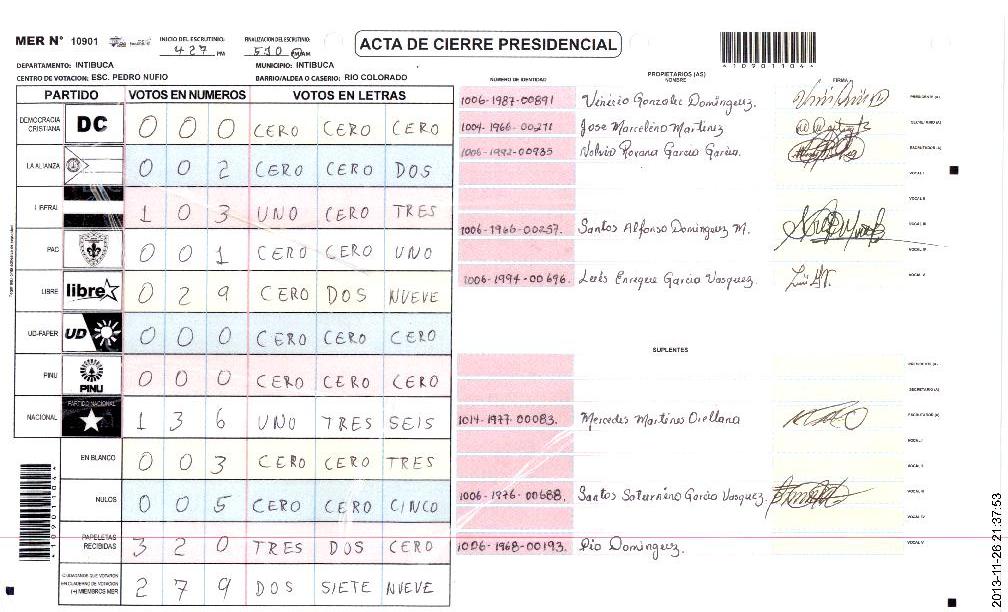 MER N° 10901
INICIO DEL ESCRUTINIO: 4 27 PM
FINALIZACION DEL ESCRUTINIO: 510 PM/AM
ACTA DE CIERRE PRESIDENCIAL
DEPARTAMENTO: INTIBUCA
MUNICIPIO: INTIBUCA
CENTRO DE VOTACION: ESC. PEDRO NUFIO
BARRIO/ALDEA O CASERIO: RIO COLORADO
*109011044*
PARTIDO VOTOS EN NUMEROS VOTOS EN LETRAS
DEMOCRACIA CRISTIANA DC 0 0 0 CERO CERO CERO
LA ALIANZA 0 0 2 CERO CERO DOS
LIBERAL 1 0 3 UNO CERO TRES
PAC 0 0 1 CERO CERO UNO
LIBRE libre 0 2 9 CERO DOS NUEVE
UD-FAPER UD 0 0 0 CERO CERO CERO
PINU PINU 0 0 0 CERO CERO CERO
NACIONAL PARTIDO NACIONAL 1 3 6 UNO TRES SEIS
EN BLANCO 0 0 3 CERO CERO TRES
NULOS 0 0 5 CERO CERO CINCO
PAPELETAS RECIBIDAS 3 2 0 TRES DOS CERO
CIUDADANOS QUE VOTARON EN CUADERNO DE VOTACION (+) MIEMBROS MER 2 7 9 DOS SIETE NUEVE
*109011044*
PROPIETARIOS (AS)
NUMERO DE IDENTIDAD NOMBRE FIRMA
1006-1987-00891 Vinicio Gonzalec Dominguez. PRESIDENTE (A)
1004-1966-00271 Jose Marcelino Martinez SECRETARIO (A)
1006-1992-00935 Nolvia Roxana Garcia Garcia. ESCRUTADOR (A)
VOCAL I
VOCAL II
1006-1966-00257. Santos Alfonso Dominguez M. VOCAL III
VOCAL IV
1006-1994-00696. Luis Enrrique Garcia Vasquez. VOCAL V
SUPLENTES
PRESIDENTE (A)
SECRETARIO (A)
1014-1977-00083. Mercedes Martines Orellana ESCRUTADOR (A)
VOCAL I
VOCAL II
1006-1976-00688. Santos Saturnino Garcia Vasquez. VOCAL III
VOCAL IV
1006-1968-00193. Pio Dominguez. VOCAL V
2013-11-26 21:37:53